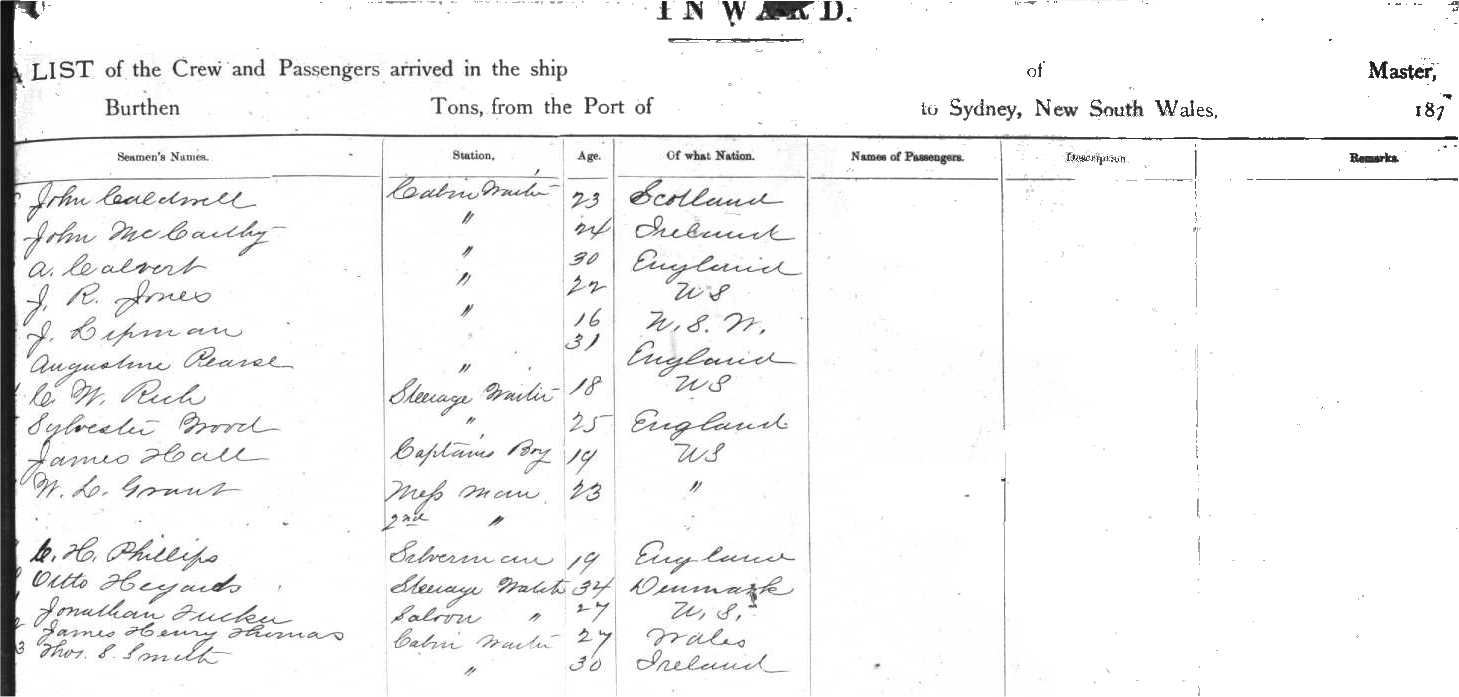 INWARD.
A LIST of the Crew and Passengers arrived in the ship of Master,
Burthen Tons, from the Port of to Sydney, New South Wales, 187
Seamen's Names. Station, Age. Of what Nation. Names of Passengers. Description Remarks.
John Caldwell Cabin Waiter 23 Scotland
John McCarthy " 24 Ireland
A. Calvert " 30 England
J. R. Jones " 22 US
J. Lipman " 16 N.S.W.
Augustine Pearse " 31 England
C. W. Rich Steerage Waiter 18 US
Sylvester Wood " 25 England
James Hall Captains Boy 19 US
W. L. Grant Mess man 23 "
2nd "
C. H. Phillips Silverman 19 England
Otto Steerage Watch 34 Denmark
Jonathan Tucker Saloon " 27 U.S.
James Henry Thomas Cabin Waiter 27 Wales
3 Thos. S. Smith " 30 Ireland